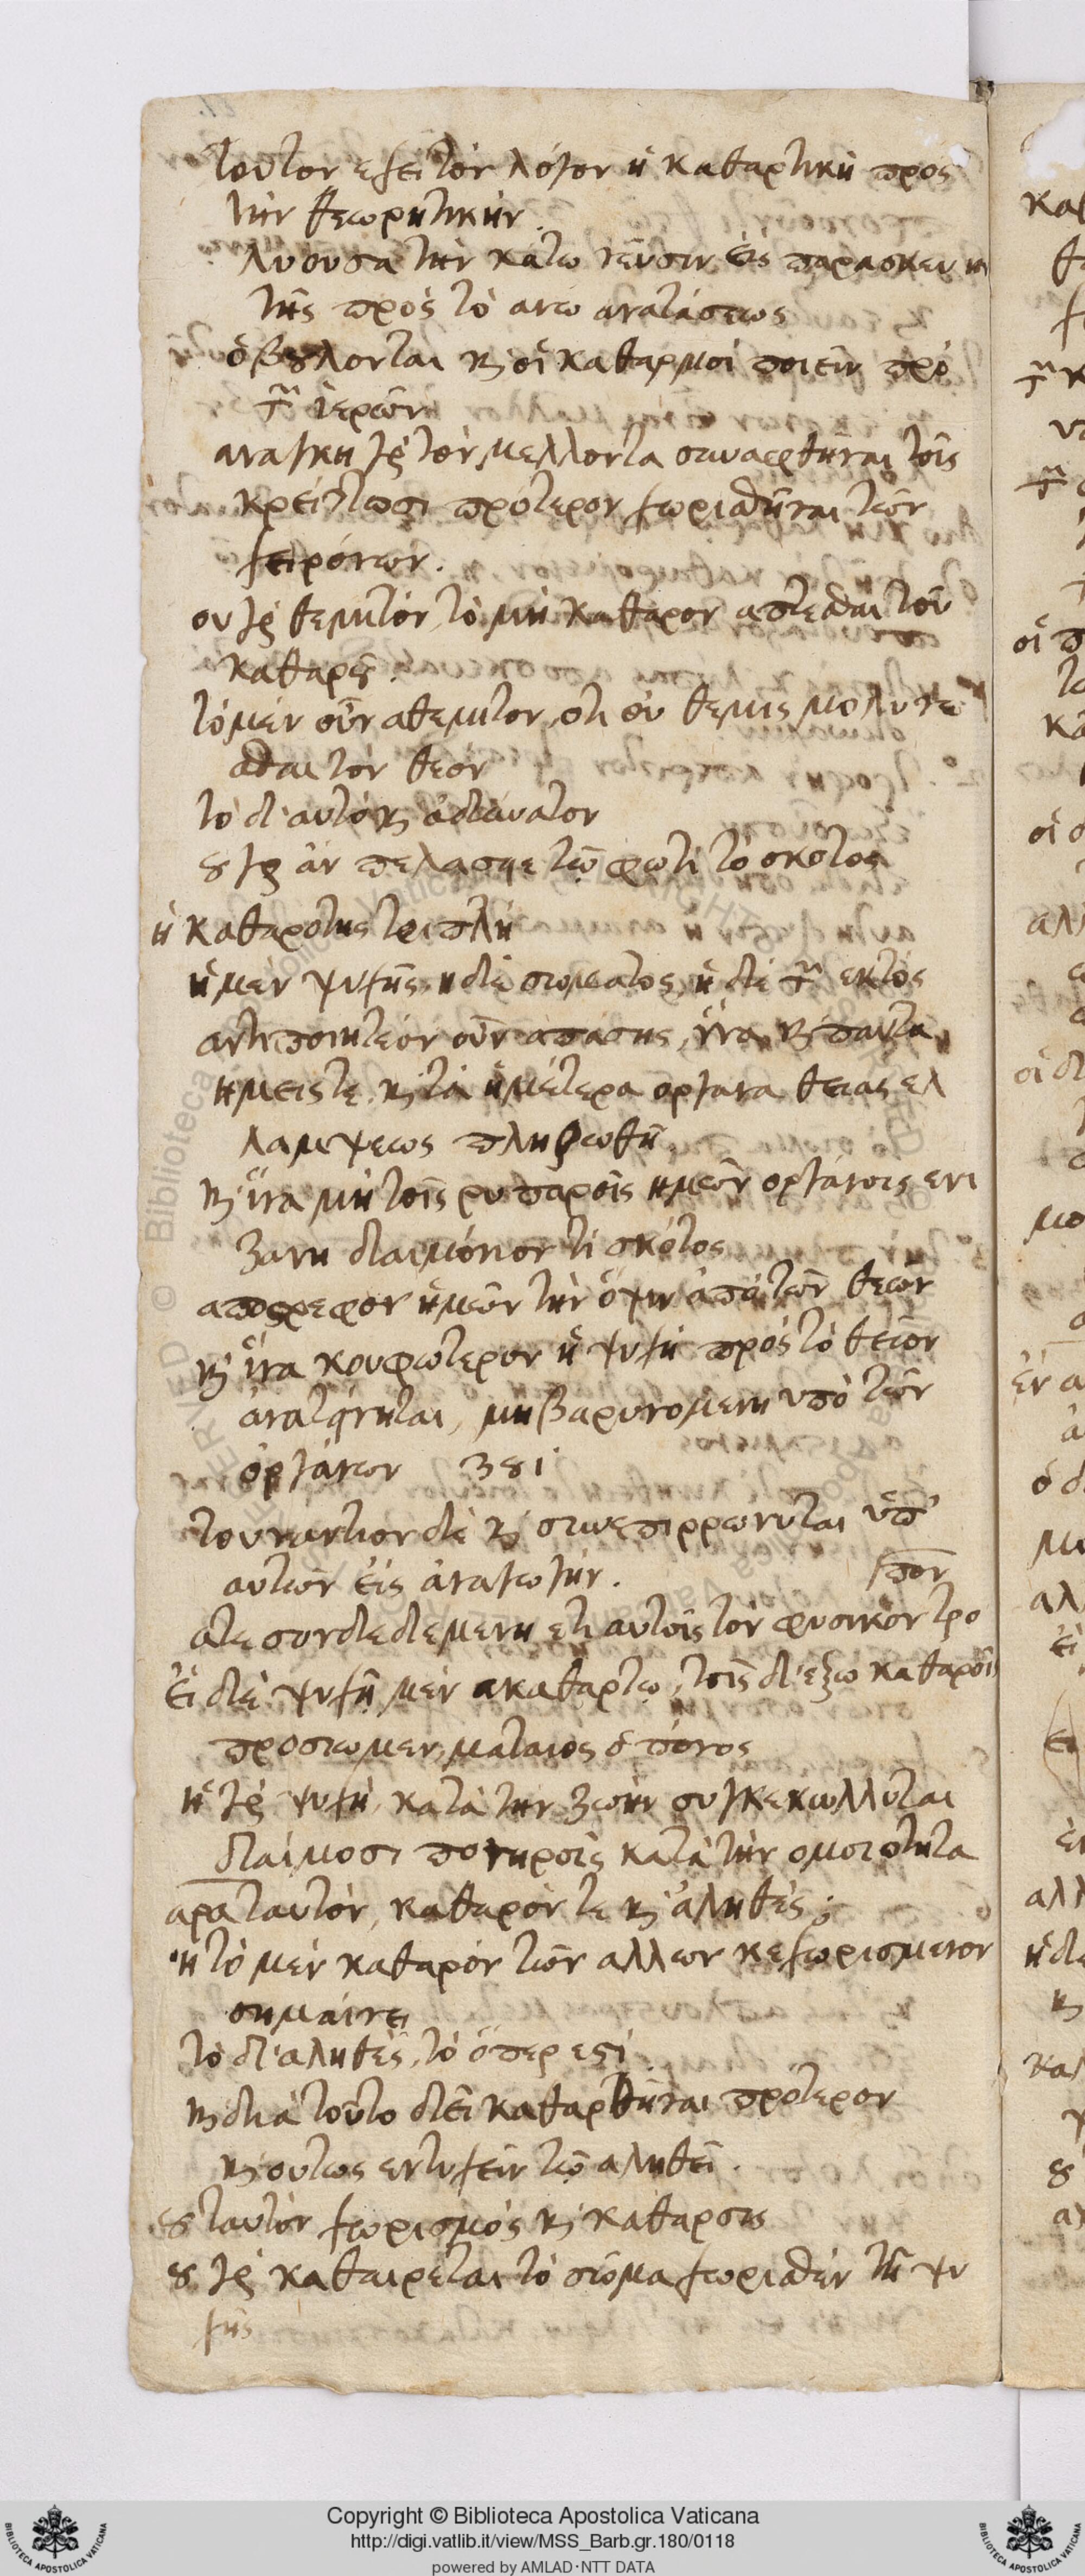 τοῦτον εχει τὸν λόγον ἡ καθαρτικὴ προς
τὴν θεωρητικήν.
λυουσα τὴν κάτω νεῦσιν εἰς παρασκευὴν
τῆς πρὸς τὸ ανω ανατάσεως
ὃ βουλονται καὶ οἱ καθαρμοὶ ποιεῖν πρὸ
τῶν ἱερῶν
αναγκη γὰρ τὸν μελλοντα συναφθῆναι τοῖς
κρείττοσι πρότερον χωρισθῆναι τῶν
χειρόνων.
ου γὰρ θεμιτὸν τὸ μὴ καθαρον απτεσθαι τοῦ
καθαροῦ.
τὸ μὲν οὖν αθεμιτον, οτι οὐ θεμις μολυνε
σθαι τὸν θεόν
τὸ δ' αυτὸ καὶ ἀδύνατον
οὐ γὰρ ἂν πελασῃε τῷ φωτὶ τὸ σκοτος
ἡ καθαρότης τριπλῆ
ἡ μὲν ψυχῆς, η δὲ σώματος, ἡ δὲ τῶν εκτός
αντιποιητέον οὖν απασης, ἵνα καὶ παντα
ημεις τε, καὶ τὰ ἡμέτερα οργανα θειας ελ
λαμψεως πληρωθῇ
καὶ ἵνα μὴ τοῖς ρυπαροῖς ημῶν οργάνοις ενι
ζανῃ δαιμόνιόν τι σκότος
αποστρεφον ἡμῶν τὴν ὄψιν ἀπὸ τῶν θεῶν
καὶ ἵνα κουφώτερον ἡ ψυχὴ πρὸς τὸ θεῖον
ἀνατείνηται, μη βαρυνομενη υπὸ τῶν
ὀργάνων 381
τουναντιον δὲ καὶ συνεπιρρωνυται ὑπ'
αυτῶν εἰς ἀναγωγήν.
ατε συνδεδεμενη ετι αυτοῖς τὸν φυσικὸν τρο
πον
Εἰ δὲ ψυχῇ μὲν ακαθάρτῳ, τοῖς δ' εξω καθαροῖς
προσιωμεν, ματαιος ὁ πόνος
ἡ γὰρ ψυχὴ, κατὰ την ζωὴν συγκεκωλληται
δαίμοσι πονηροῖς κατὰ τὴν ομοιότητα
αρα ταυτὸν, καθαρόν τε καὶ ἀληθές;
ἢ τὸ μὲν καθαρὸν τῶν αλλων κεχωρισμενον
σημαίνει
τὸ δ' αληθὲς, τὸ ὅπερ εστί
καὶ διὰ τοῦτο δεῖ καθαρθῆναι πρότερον
καὶ οὕτως εντυχεῖν τῷ αληθεῖ.
οὐ ταυτὸν χωρισμὸς καὶ κάθαρσις
οὐ γὰρ καθαιρεται τὸ σῶμα χωρισθὲν τῆς ψυ
χῆς
Copyright © Biblioteca Apostolica Vaticana
http://digi.vatlib.it/view/MSS_Barb.gr.180/0118
powered by AMLAD·NTT DATA